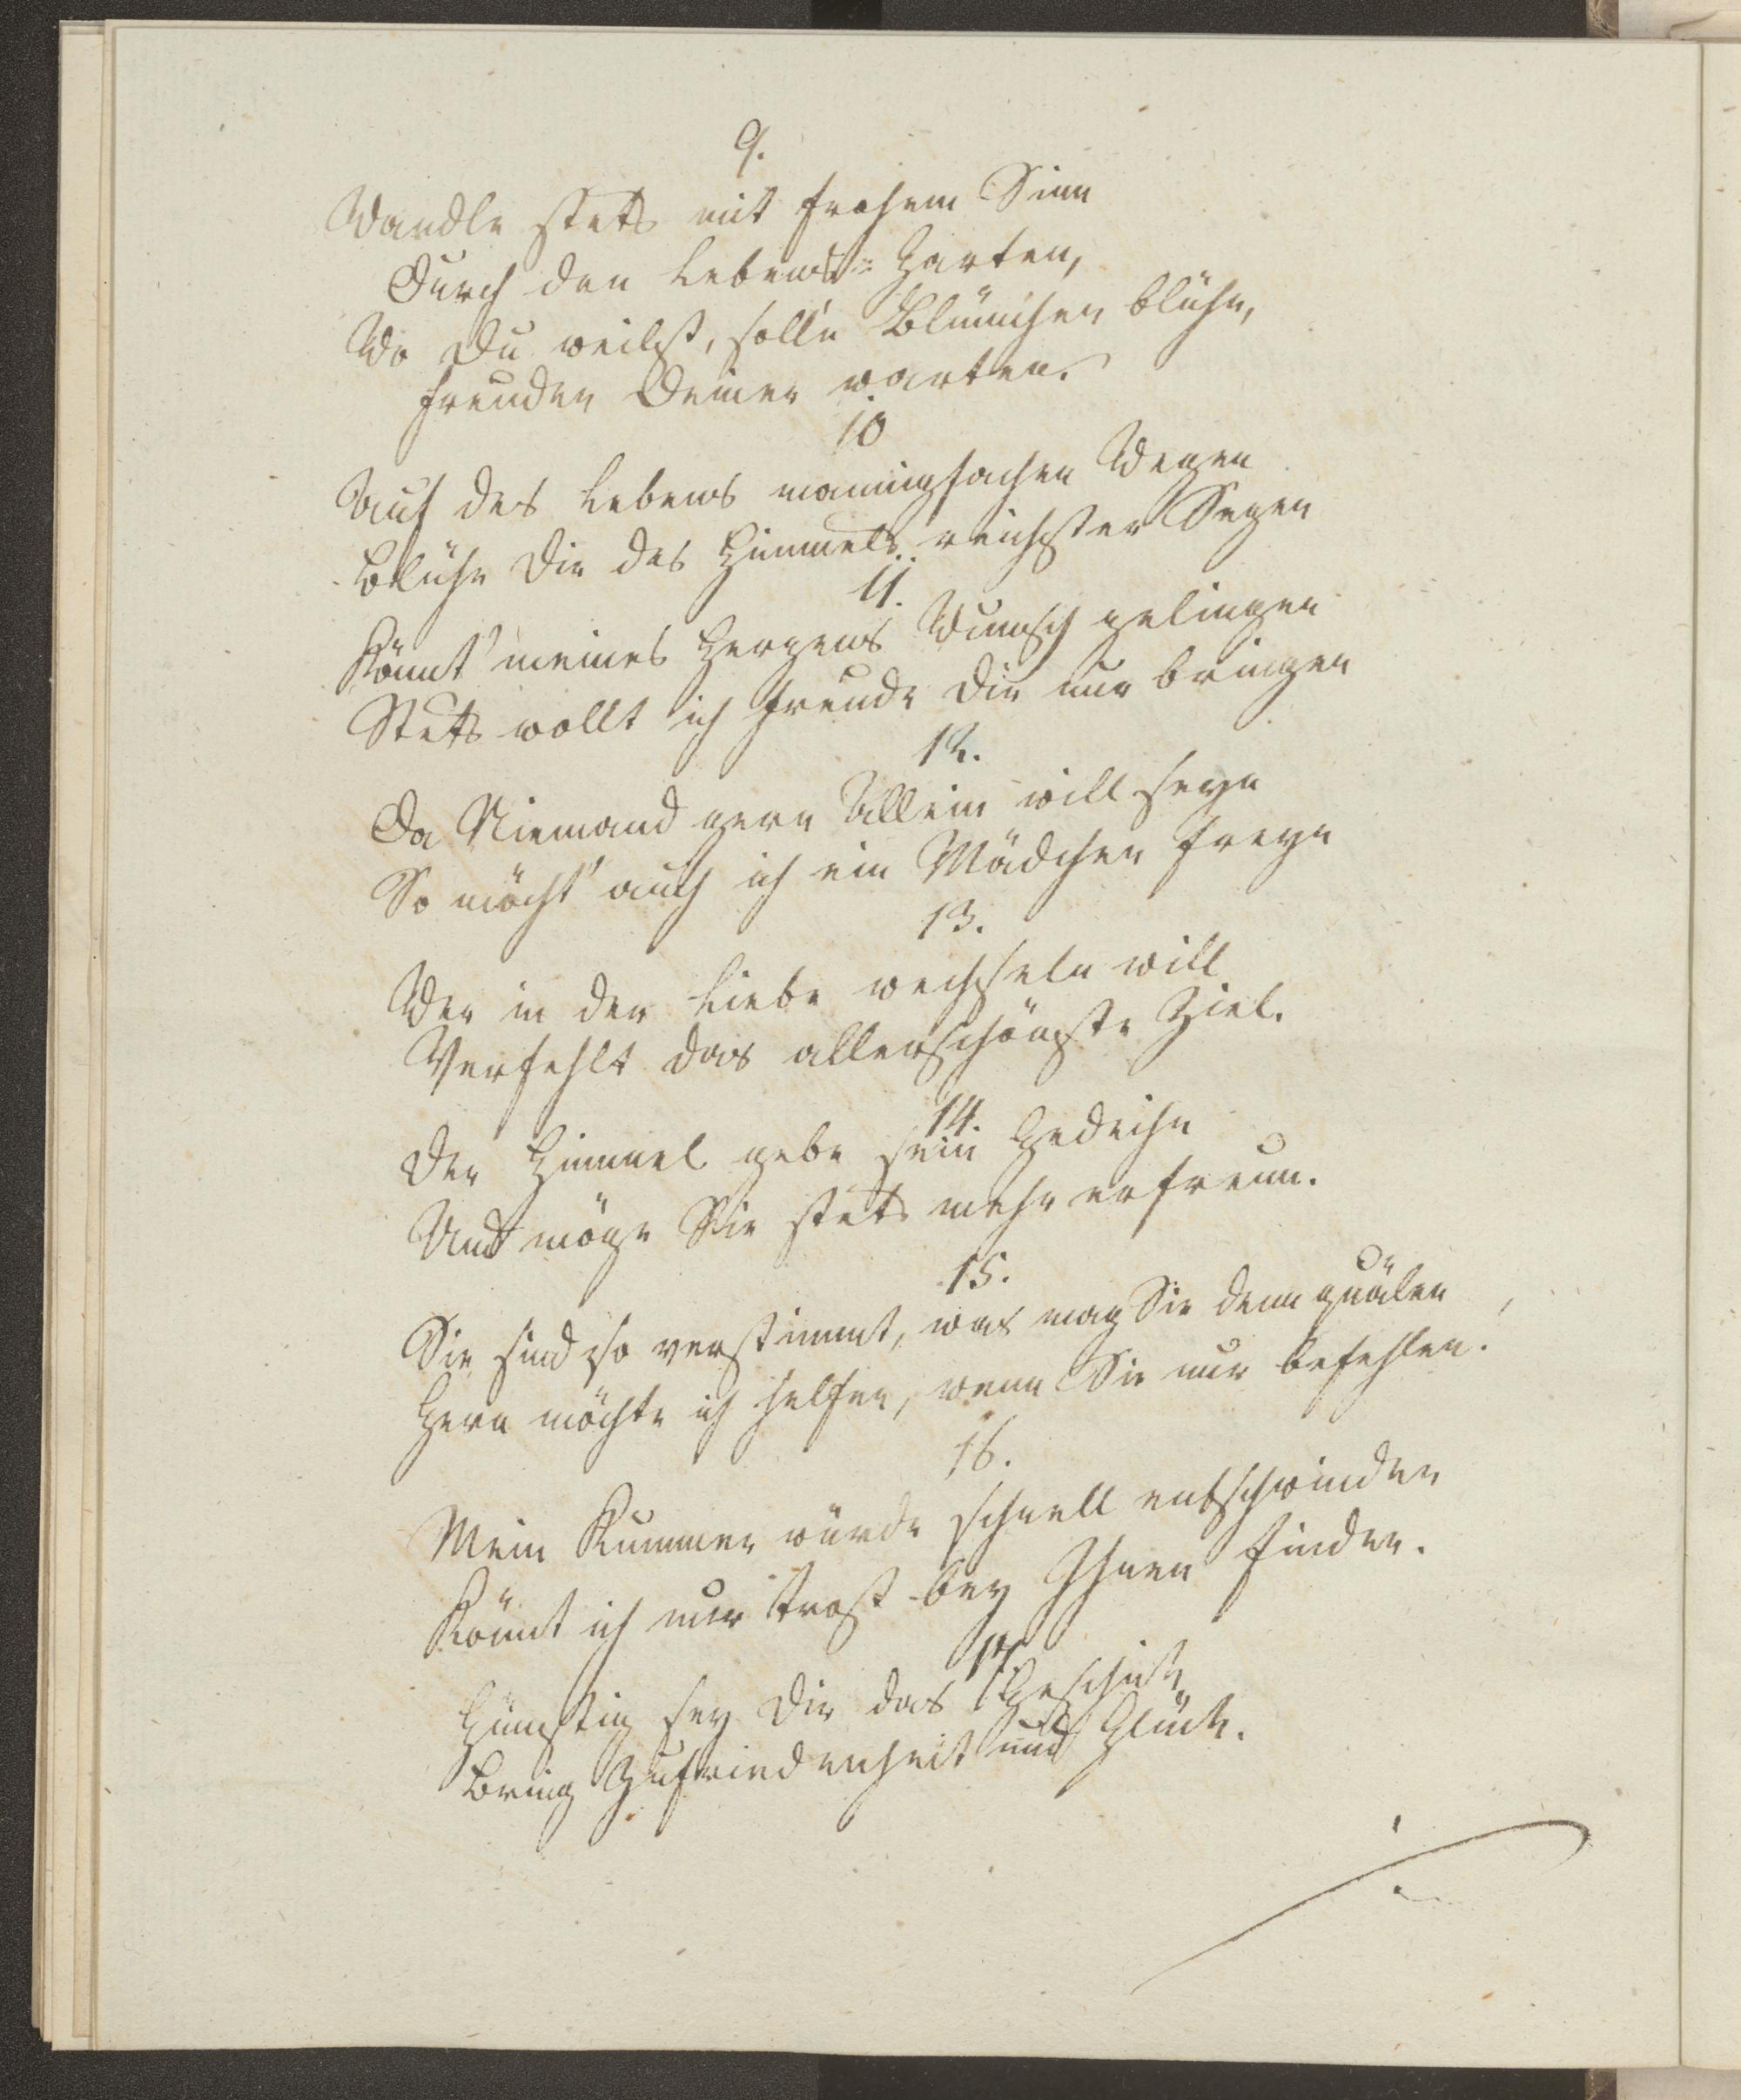 9.
Wandle stets mit frohem Sinn
Durch den Lebens-Garten,
Wo Du weilest, soll'n Blümchen blühn,
Freuden Deiner warten.
10
Auf des Lebens mannigfachen Wegen
Blühe Dir des Himmels reichster Segen
11.
Könnt' meines Herzens Wunsch gelingen
Stets wollt ich Freude Dir nur bringen
12.
Da Niemand gern Allein will seyn
So möcht' auch ich ein Mädchen freyn
13.
Wer in der Liebe wechseln will
Verfehlt das allerschönste Ziel.
14.
Der Himmel gebe sein Gedeihn
Und möge Sie stets mehr erfreun.
15.
Sie sind so verstimmt, was mag Sie denn quälen
Gern möchte ich helfen, wenn Sie nur befehlen.
16.
Mein Kummer würde schnell entschwinden
Könnt ich nur Trost bey Ihnen finden.
17.
Günstig sey Dir das Geschick
Bring Zufriedenheit und Glück.